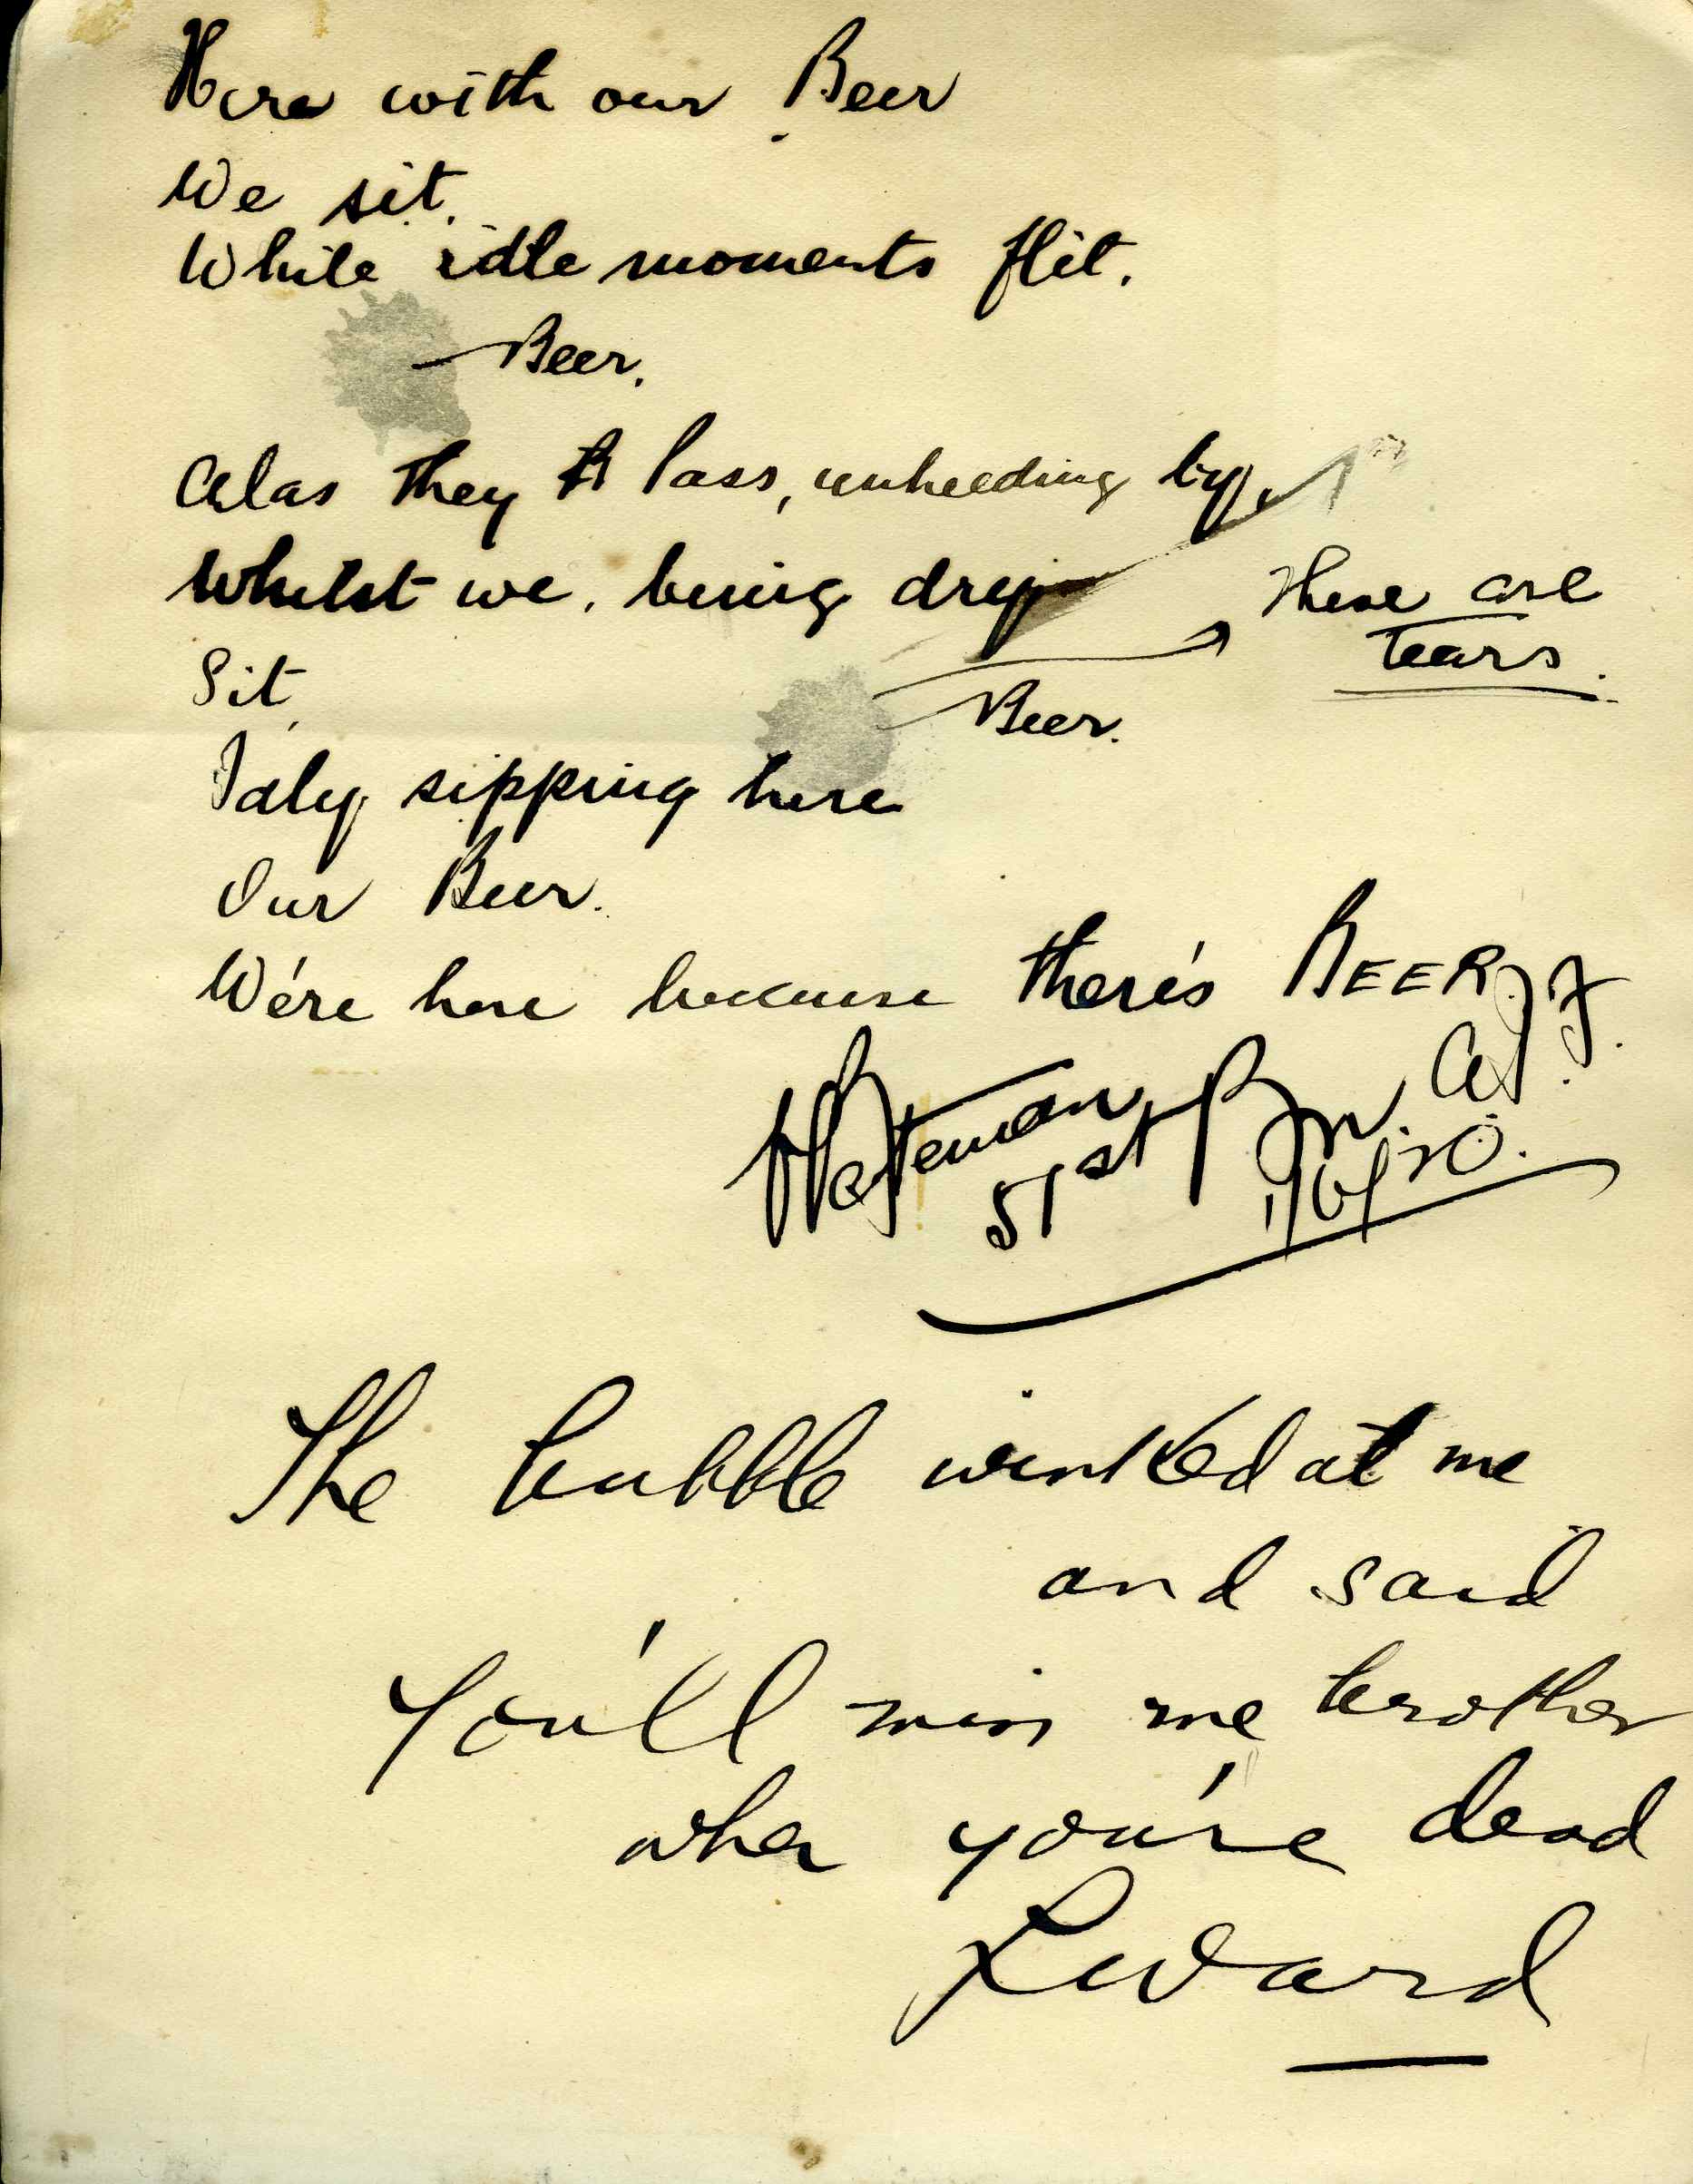 Here with our Beer
We sit.
While idle moments flit.
Beer.
Alas they pass, unheeding by,
Whilst we, being dry
These are
tears.
Sit,
Beer.
Idly sipping here
Our Beer.
We're here because there's BEER.
Bateman
51st Bn. A.I.F.
The bubble winked at me
and said
You'll miss me brother
when you're dead
L Ward